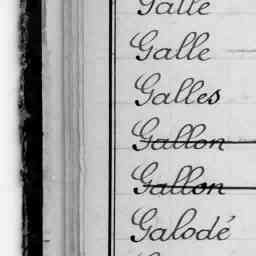 Galle
Galle
Galles
Gallon
Gallon
Galodé